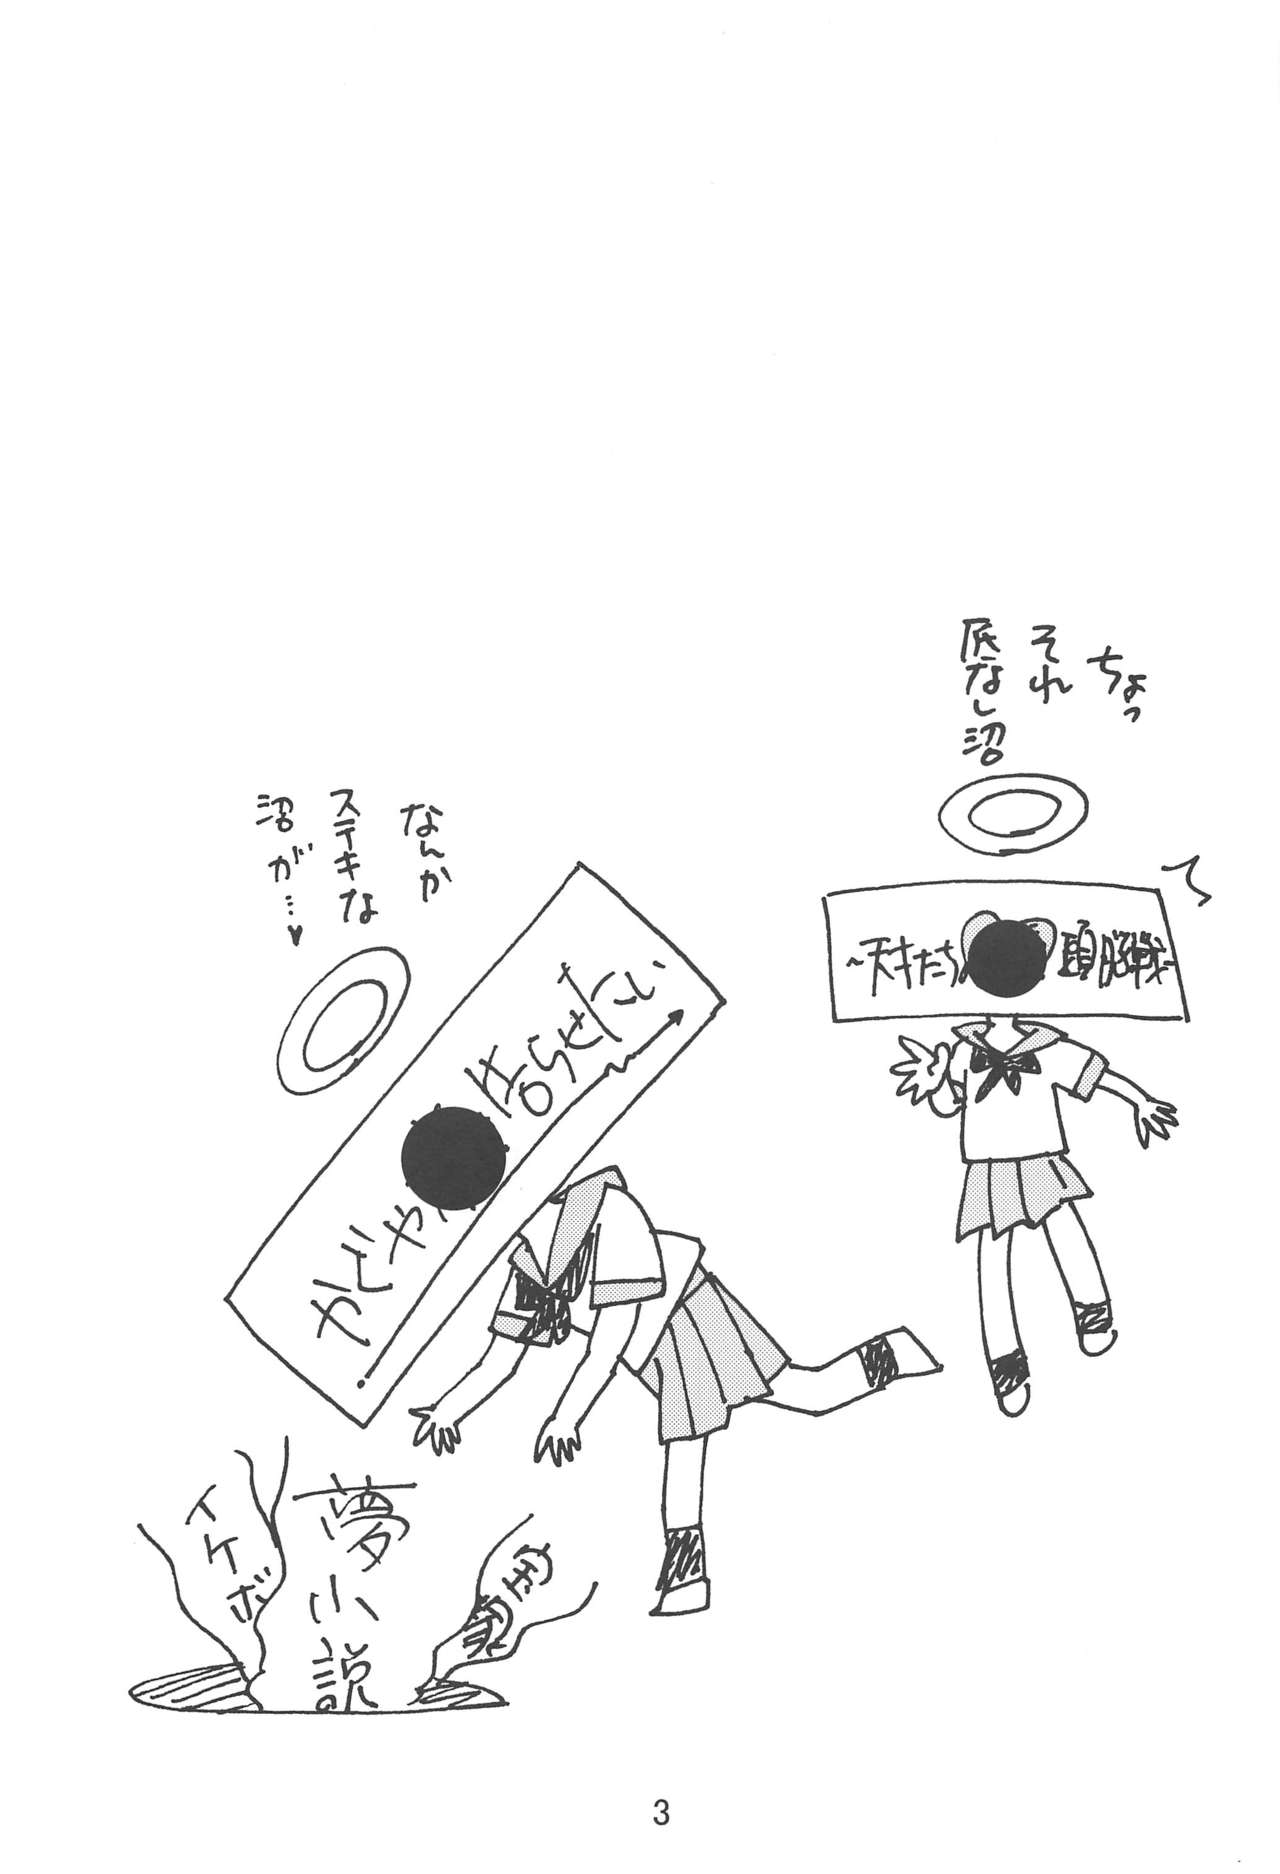 ちょっ
それ
底なし沼
～天才たち
頭脳戦～
なんか
ステキな
沼が…♥
かぐや
はらせたい
イケボ
夢小説